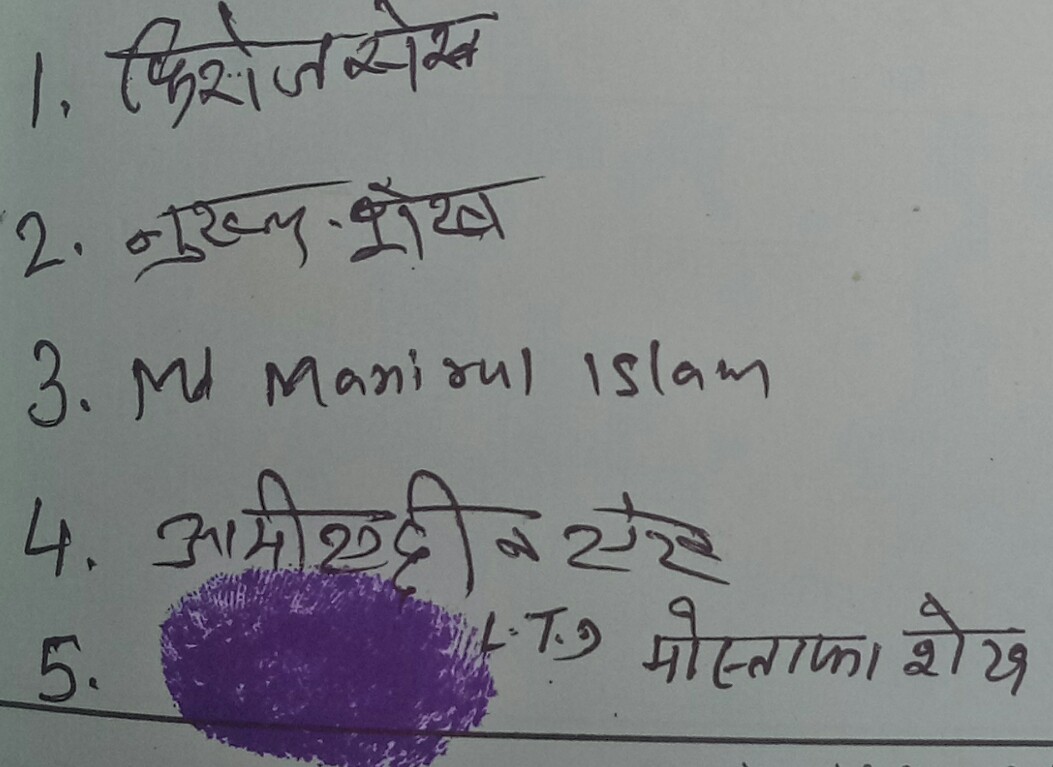 1. फिरोज शेख
2. नुरुल शेख
3. Md Manirul Islam
4. आमीरुद्दीन शेख
5. L.T.I मोस्ताफा शेख